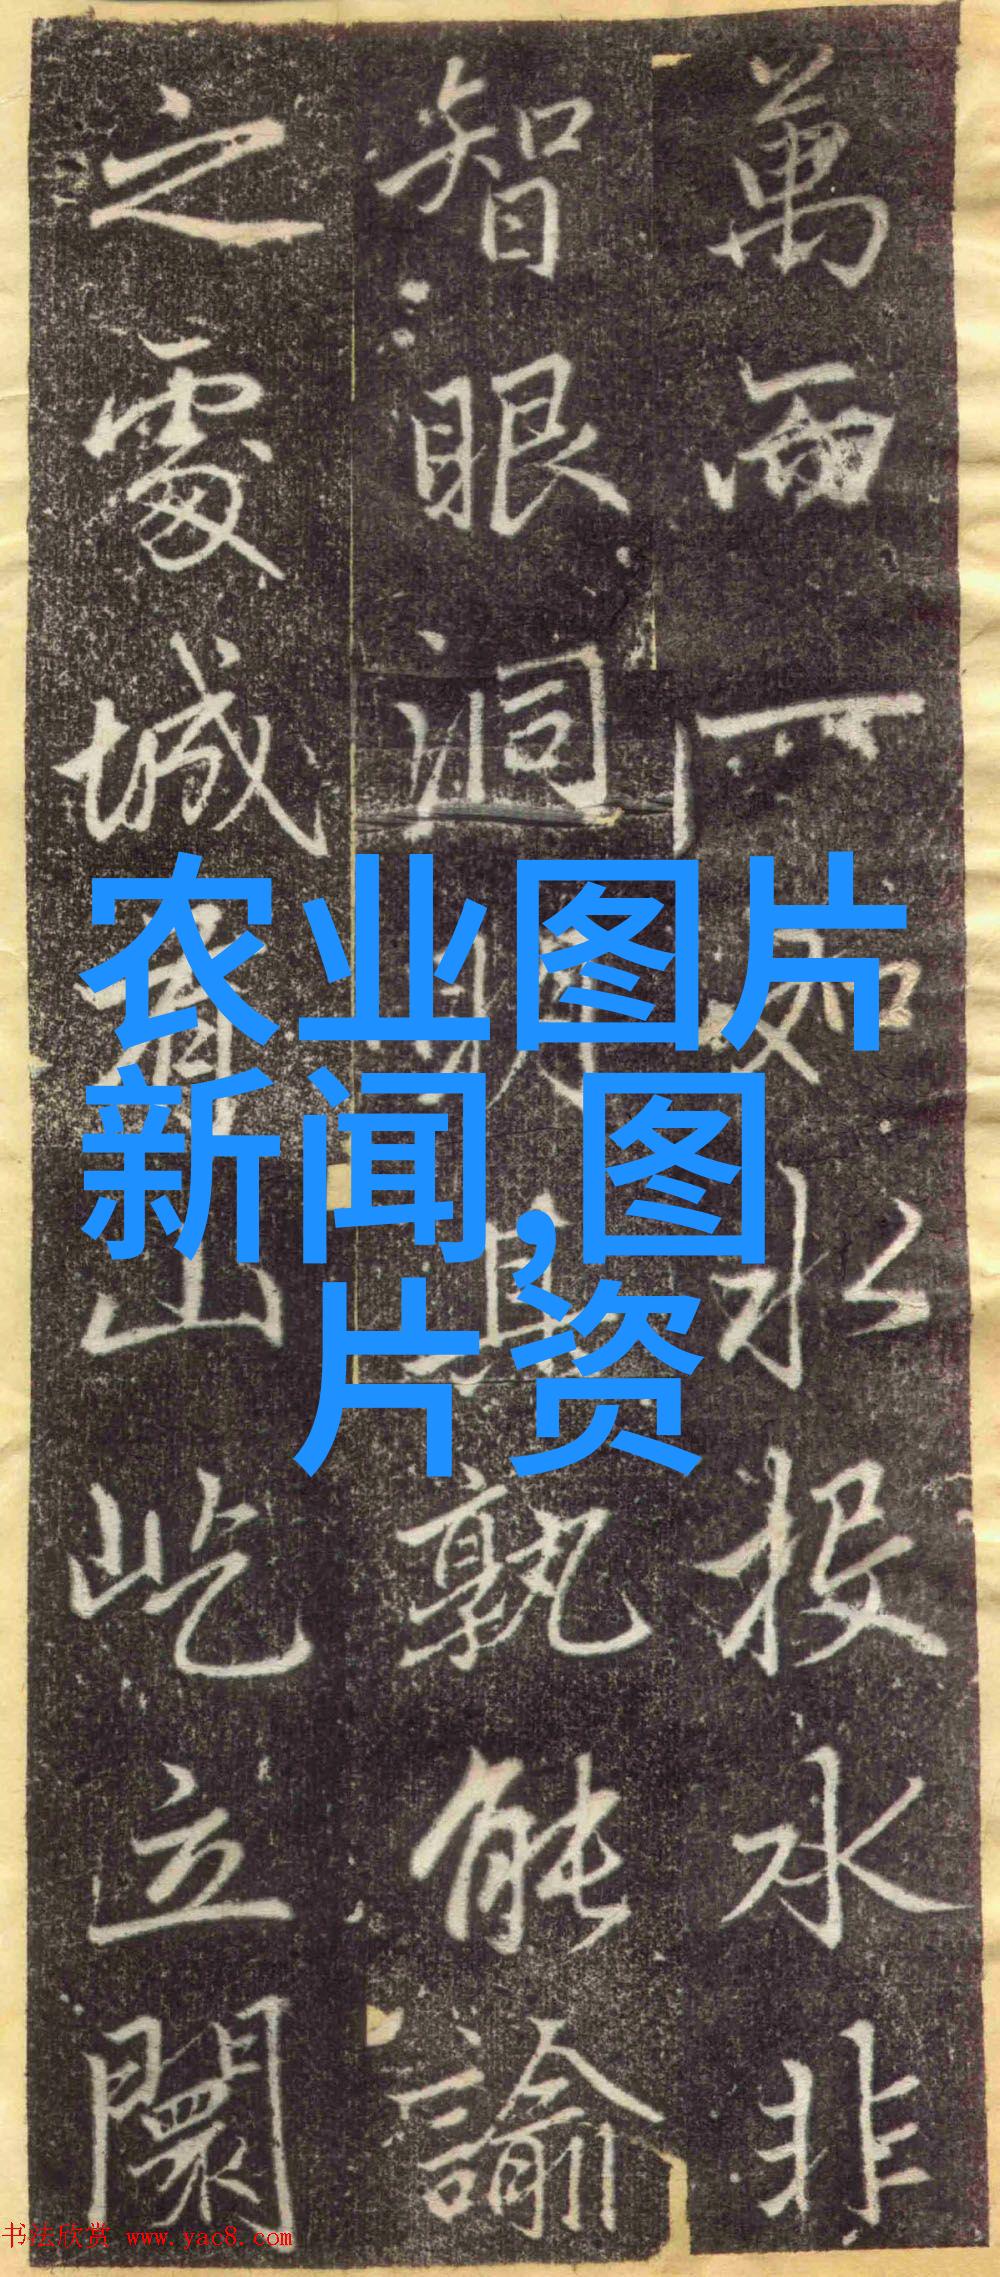 萬而一如水投水非
智眼洞其孰能諭
之處城山屹立闤
农业图片
新闻,图
片资
书法欣赏 www.yac8.com